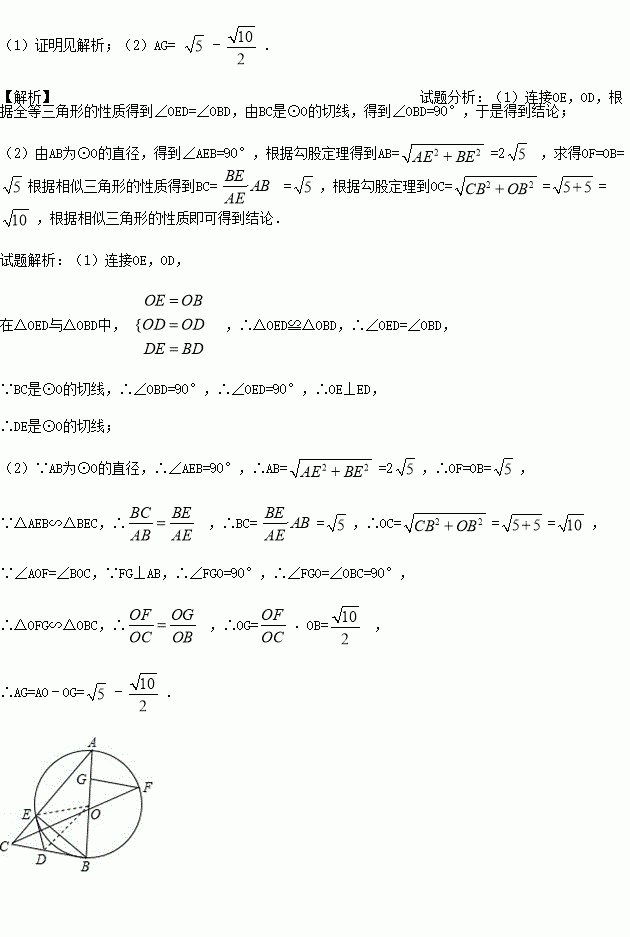 （1）证明见解析；（2）AG= √5 － √10/2 ．
【解析】 试题分析：（1）连接OE，OD，根
据全等三角形的性质得到∠OED=∠OBD，由BC是⊙O的切线，得到∠OBD=90°，于是得到结论；
（2）由AB为⊙O的直径，得到∠AEB=90°，根据勾股定理得到AB=√(AE²+BE²) =2√5 ，求得OF=OB=
√5 根据相似三角形的性质得到BC= BE/AE·AB =√5 ，根据勾股定理到OC=√(CB²+OB²) =√(5+5) =
√10 ，根据相似三角形的性质即可得到结论．
试题解析：（1）连接OE，OD，
在△OED与△OBD中， {OE=OB OD=OD DE=BD ，∴△OED≌△OBD，∴∠OED=∠OBD，
∵BC是⊙O的切线，∴∠OBD=90°，∴∠OED=90°，∴OE⊥ED，
∴DE是⊙O的切线；
（2）∵AB为⊙O的直径，∴∠AEB=90°，∴AB=√(AE²+BE²) =2√5 ，∴OF=OB=√5 ，
∵△AEB∽△BEC，∴BC/AB=BE/AE ，∴BC= BE/AE·AB =√5 ，∴OC=√(CB²+OB²) =√(5+5) =√10 ，
∵∠AOF=∠BOC，∵FG⊥AB，∴∠FGO=90°，∴∠FGO=∠OBC=90°，
∴△OFG∽△OBC，∴OF/OC=OG/OB ，∴OG=OF/OC · OB=√10/2 ，
∴AG=AO－OG=√5 － √10/2 ．
A
G
F
E
O
C
D
B